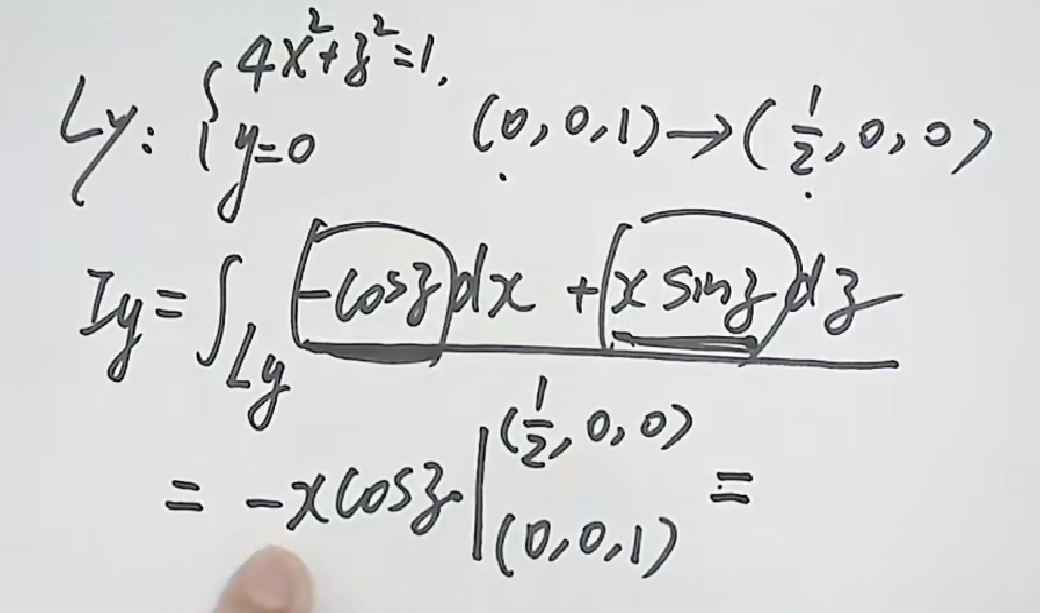 Ly: { 4x²+z²=1,
y=0
(0,0,1)→(1/2,0,0)
Iy=∫Ly [-cosz]dx + (x sinz)dz
= -xcosz |(0,0,1)^(1/2,0,0) =